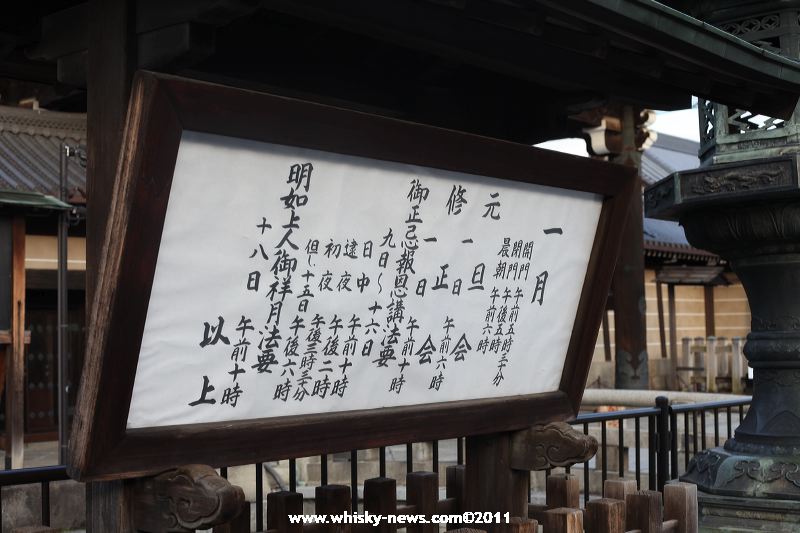 一月
開門 午前五時三十分
閉門 午後五時
晨朝 午前六時
元旦会
一日 午前六時
修正会
一日 午前十時
御正忌報恩講法要
九日〜十六日
日中 午前十時
逮夜 午後二時
初夜 午後五時三十分
但し十五日 午後六時
明如上人御祥月法要
十八日 午前十時
以上
www.whisky-news.com©2011